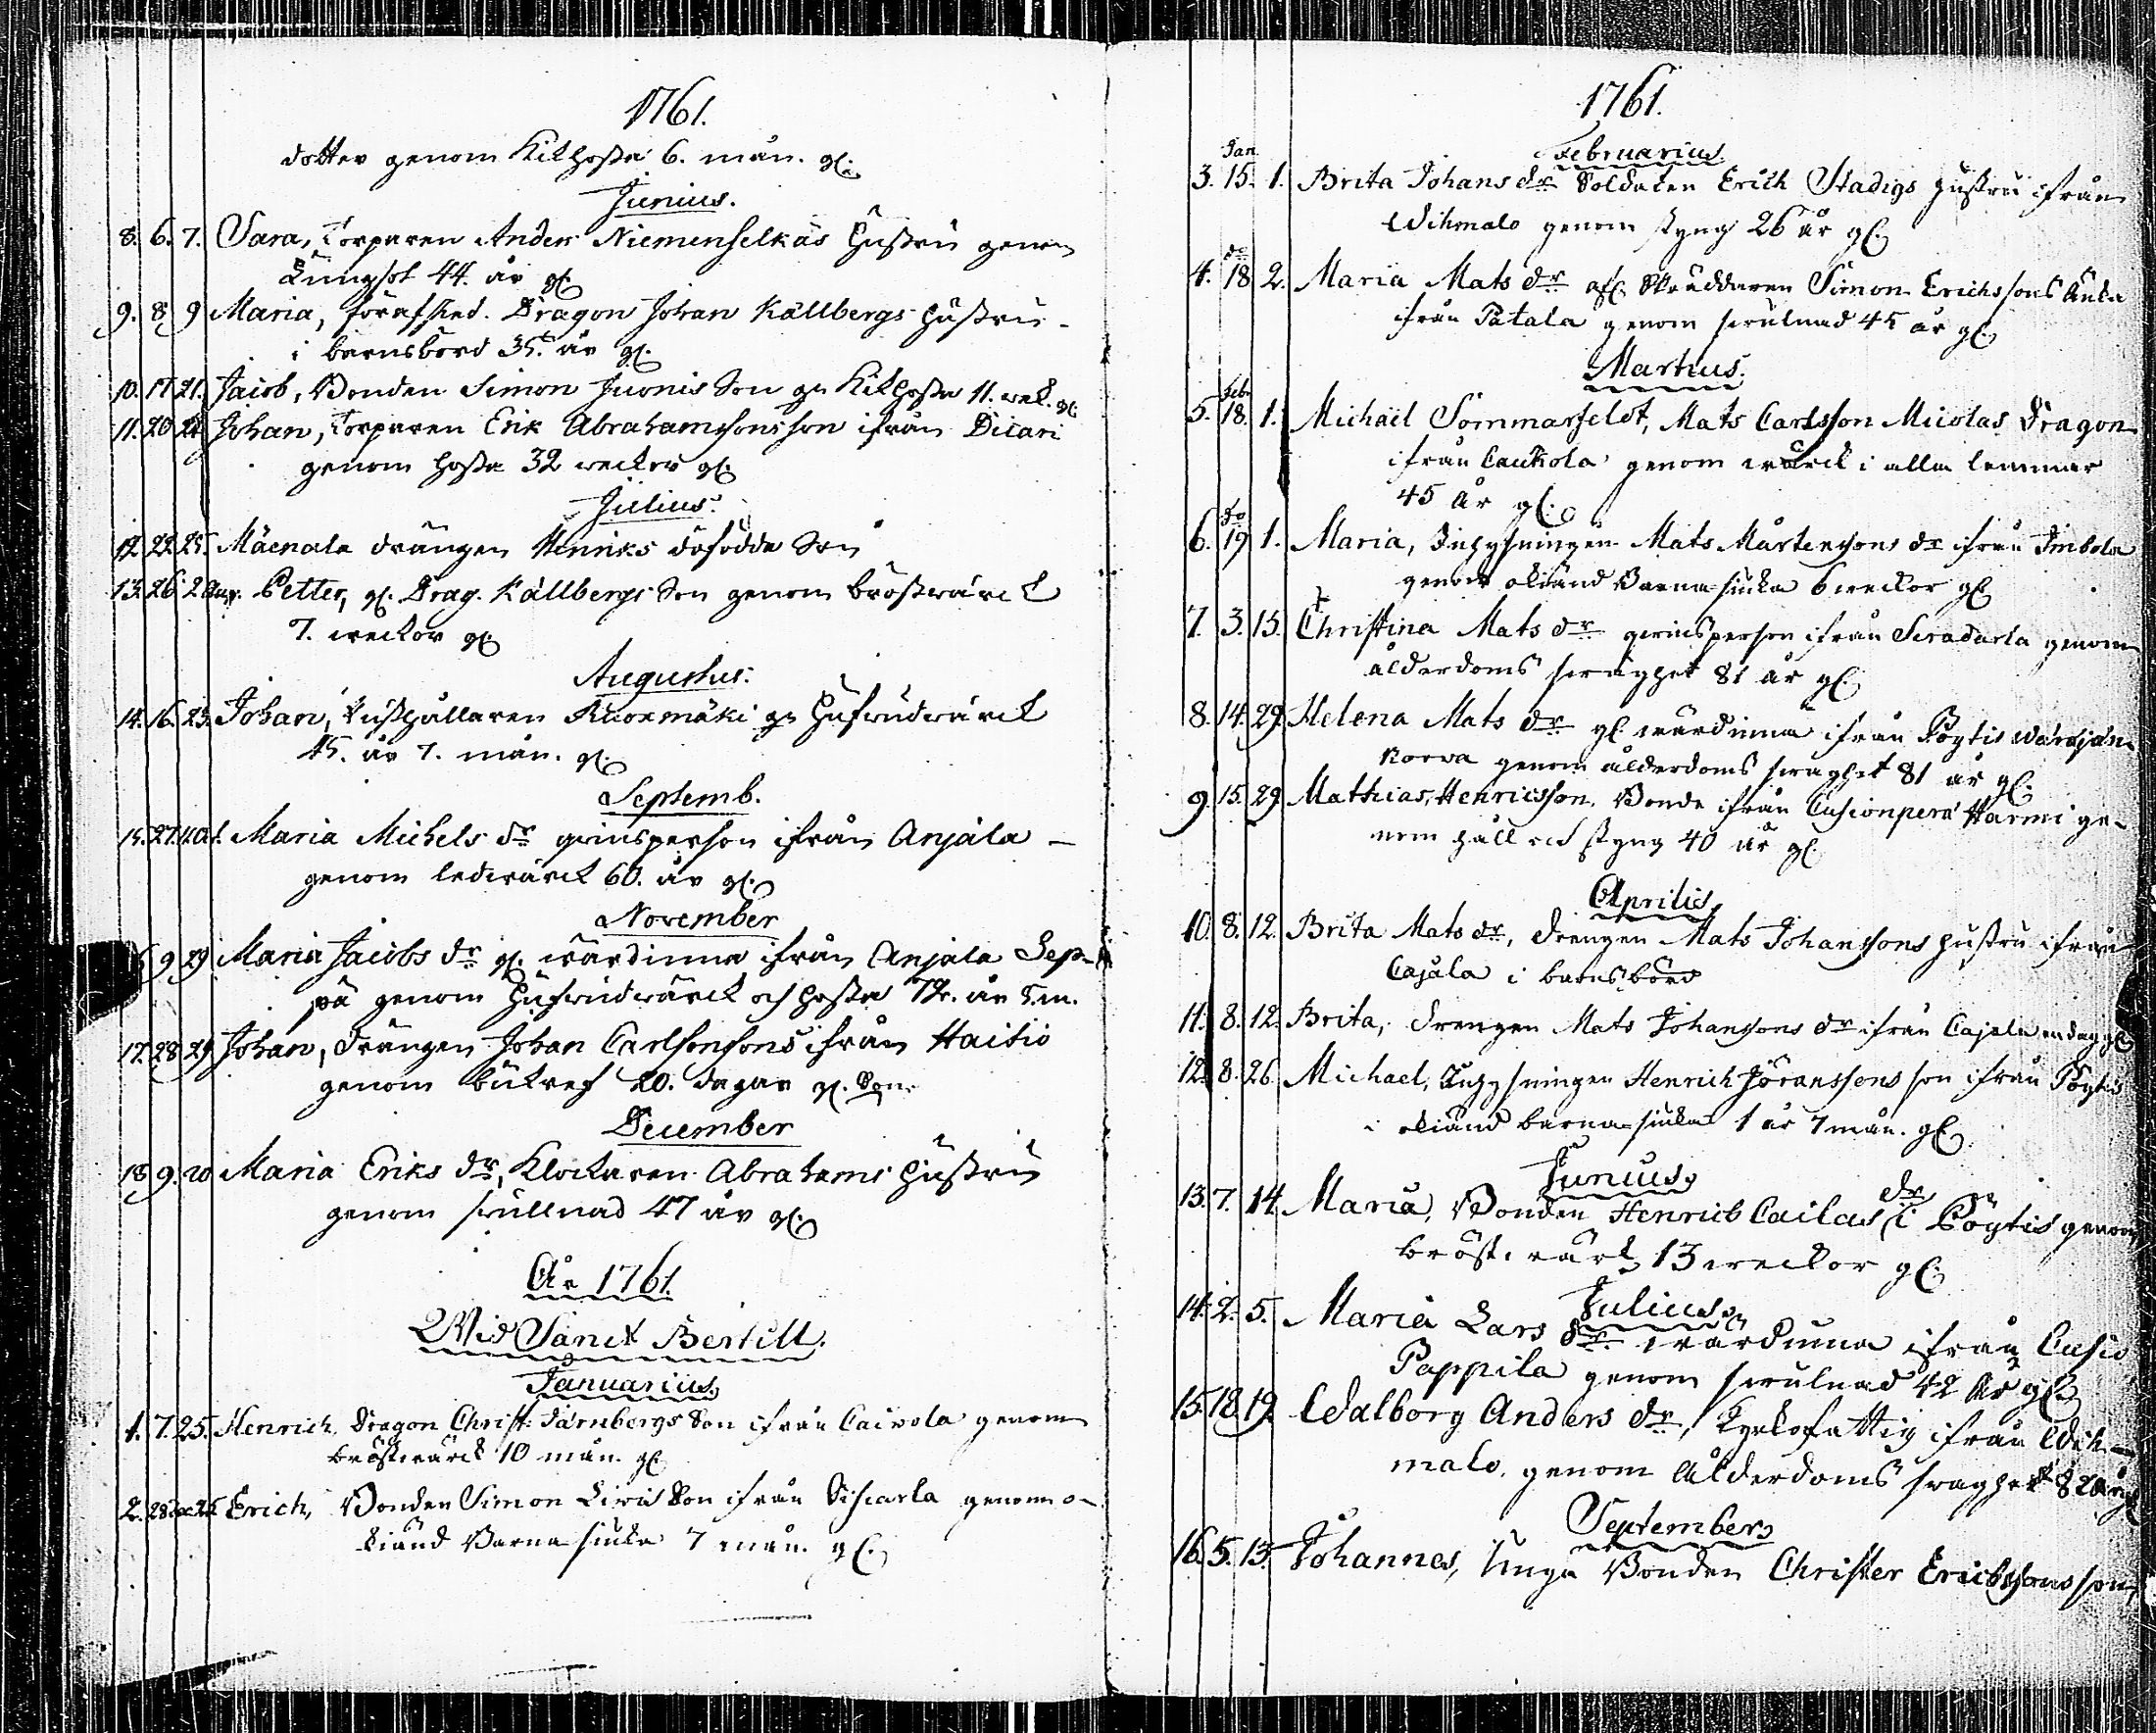 1761.
dotter genom Kikhosta 6. mån. gl.
Junius.
8. 6. 7. Sara, Torparen Anders Niemenselkäs hustru genom
Lungsot 44. år gl.
9. 8 9 Maria, förafsked. Dragon Johan Källbergs hustru
i barnsbörd 35. år gl.
10. 17 21. Jacob, Bonden Simon Juonis Son gm Kikhosta 11. wek. gl.
11. 20 24 Johan, Torparen Erik Abrahamssons son ifrån
genom hosta 32 weckor gl.
Julius.
12 22 25. Mäenala drängen Henriks dödfödde Son
13. 26. 2 Aug. Petter, gl. Drag. Källbergs Son genom bröstwärck
7. weckor gl.
Augustus.
14. 16. 23. Johan, Kuoxmäki gm hufwudwärck
45. år 7. mån. gl.
Septemb.
15. 27. 4. Oct. Maria Michels dr qwinsperson ifrån Anjala
genom ledwärck 60. år gl.
November
9 29 Maria Jacobs dr gl. wärdinna ifrån Anjala Sep-
pä genom hufwudwärck och hosta 72. år 5. m.
17. 28 29 Johan, drängen Johan Carlssons ifrån Haitio
genom bukref 20. dagar gl. Son.
December
18 9. 20 Maria Eriks dr, Klockaren Abrahams hustru
genom swullnad 47 år gl.
År 1761.
Wid Sanct Bertill.
Januarius.
1. 7. 25. Henrich, Dragon Christ. Järnbergs Son ifrån Cairola genom
bröstwärck 10 mån. gl.
2. 28 25 Erich, Bonden Simon Son ifrån genom o-
kiänd Barna siuka 7 mån. gl.
1761.
Februarius
Jan.
3. 15. 1. Brita Johans dr Soldaten Erich Stadigs hustru ifrån
Wihmalo genom styng 26 år gl.
do
4. 18 2. Maria Mats dr afl. Skräddaren Simon Erichssons Enka
ifrån Patala genom swulnad 45 år gl.
Martius.
Feb.
5. 18. 1. Michaël Sommarfeldt, Mats Carlsson Micolas Dragon
ifrån Caukola genom wärck i alla lemmar
45 år gl.
do
6. 19 1. Maria, Inhysningen Mats Mårtenssons dr ifrån Imbola
genom okiänd Barna siuka 6 weckor gl.
7. 3. 15. Christina Mats dr qwinsperson ifrån genom
ålderdoms swaghet 81 år gl.
8. 14. 29. Helena Mats dr gl. wärdinna ifrån Pöytis
Korva genom ålderdoms swaghet 81 år gl.
9. 15. 29 Mathias Henricsson, Bonde ifrån Cusionperä Harmi ge-
nom håll och styng 40 år gl.
Aprilis
10. 8. 12. Brita Mats dr, drengen Mats Johanssons hustru ifrån
Cajala i barnsbörd
11. 8. 12. Brita, drengen Mats Johanssons dr ifrån Cajala en dag gl.
12. 8. 26. Michael, Inhysningen Henrich Jöranssons son ifrån Pöytis
i okiänd barna siuka 1 år 7 mån. gl.
Junius.
13. 7. 14. Maria, Bonden Henrich Cailas dr i Pöytis genom
bröstwärk 13 weckor gl.
Julius.
14. 2. 5. Maria Lars dr wärdinna ifrån Cusio
Pappila genom swulnad 42 år gl.
15. 18. 19. Walborg Anders dr, Kyrkofattig ifrån Wih-
malo, genom ålderdoms swaghet 82 år gl.
September
16. 5. 13. Johannes, Unga Bonden Christer Erichssons son